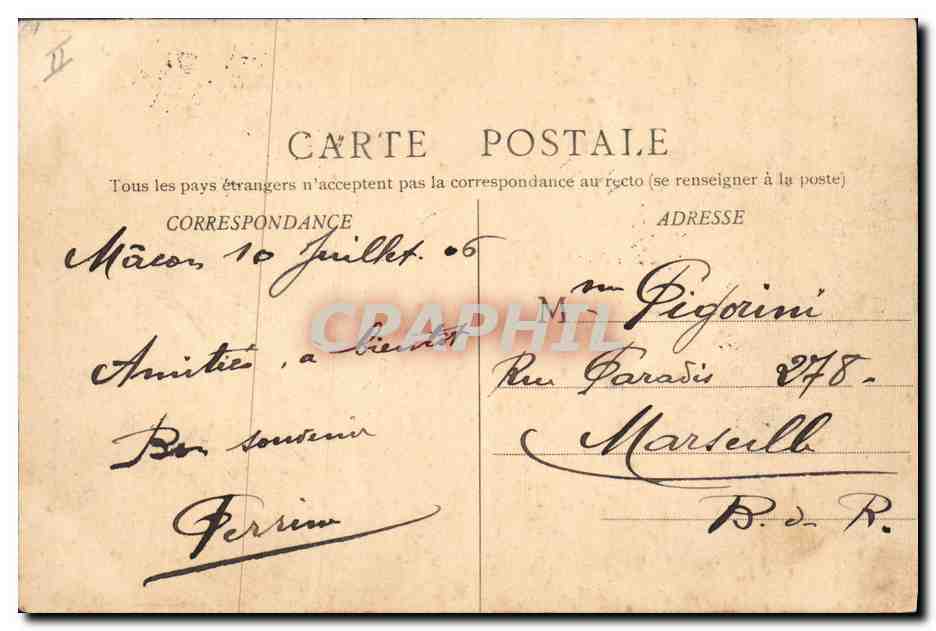 II
CARTE POSTALE
Tous les pays étrangers n'acceptent pas la correspondance au recto (se renseigner à la poste)
CORRESPONDANCE
Mâcon 10 Juillet. 06
Amitiés, a bientot
Bon souvenir
Perrin
ADRESSE
Mme Pigorini
Rue Paradis 278.
Marseille
B. d. R.
CPAPHIL